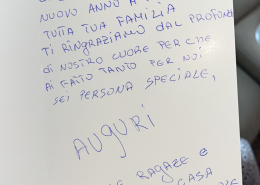 NUOVO ANNO A
TUTTA TUA FAMILIA
TI RINGRAZIANO DAL PROFONDO
DI NOSTRO CUORE PER CHE
AI FATTO TANTO PER NOI
SEI PERSONA SPECIALE,
AUGURI
RAGAZE E
CASA